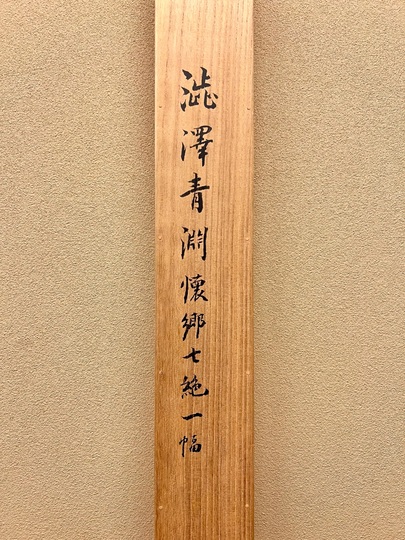 澁澤青淵懷鄉七絶一幅